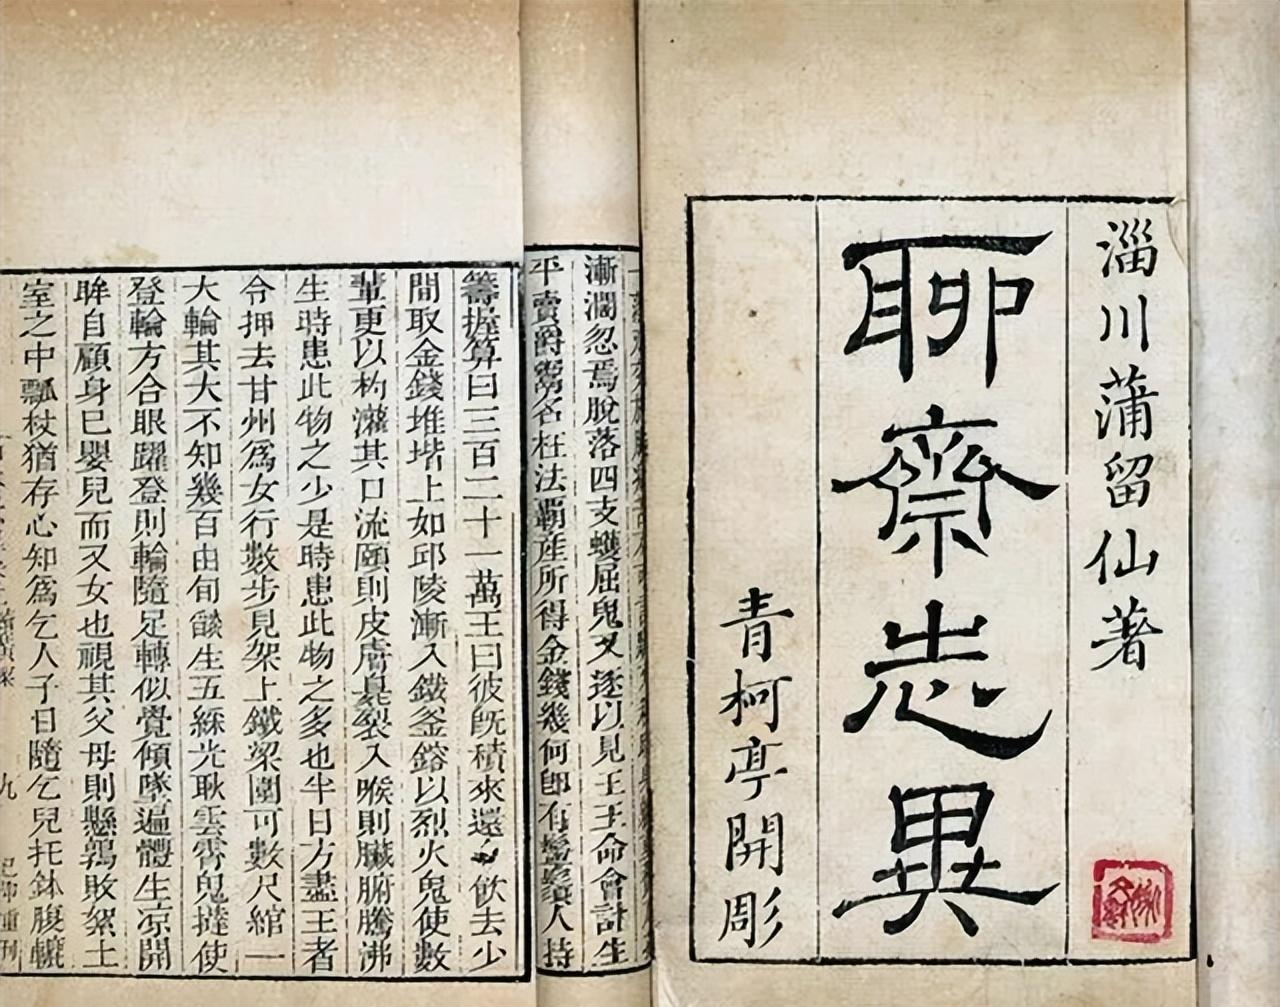 淄川蒲留仙著
聊齋志異
青柯亭開彫
漸澗忽焉脫落四支蠖屈鬼又逐以見王王命會計生
平賣爵鬻名枉法霸産所得金錢幾何卽有鬡鬚人持
籌握算曰三百二十一萬王曰彼旣積來還令飲去少
間取金錢堆堦上如邱陵漸入鐵釜鎔以烈火鬼使數
輩更以杓灌其口流頤則皮膚臭裂入喉則臟腑騰沸
生時患此物之少是時患此物之多也半日方盡王者
令押去甘州爲女行數步見架上鐵梁圍可數尺綰一
大輪其大不知幾百由旬燄生五綵光耿雲霄鬼撻使
登輪方合眼躍登則輪隨足轉似覺傾墜遍體生凉開
眸自顧身已嬰兒而又女也視其父母則懸鶉敗絮土
室之中瓢杖猶存心知爲乞人子日隨乞兒托鉢腹轆
九
己卯重刊